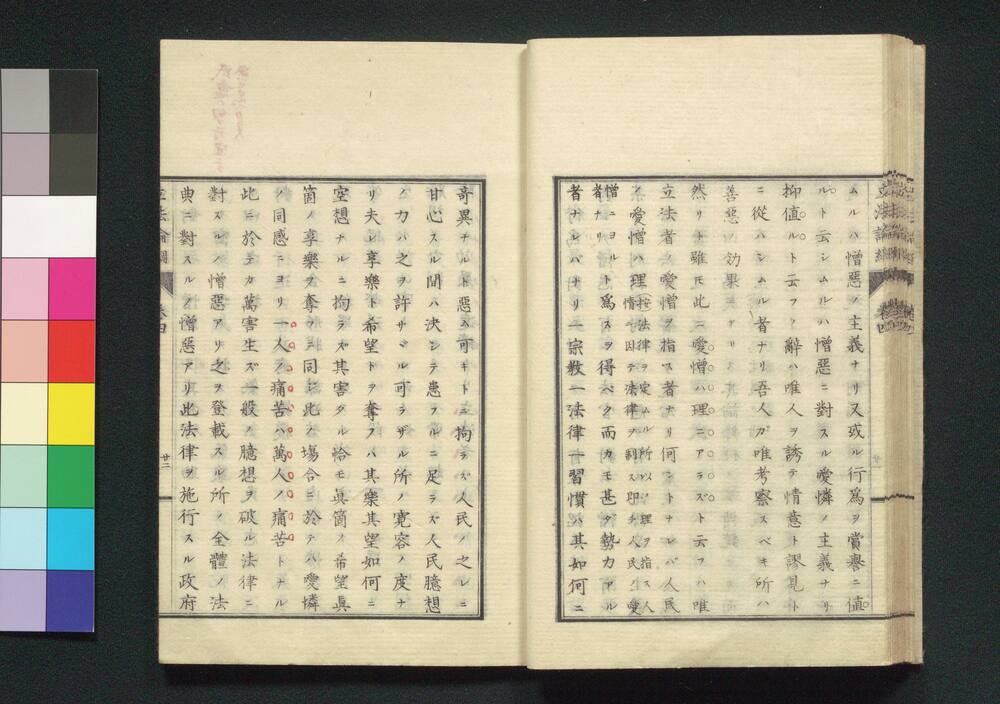 ムルハ憎惡ノ主義ナリ又或ル行爲ヲ賞譽ニ値
ルト云シムルハ憎惡ニ對スル愛憐ノ主義ナリ
抑値ルト云フノ辭ハ唯人ヲ誘テ情意ト謬見ト
ニ從ハシムル者ナリ吾人カ唯考察スベキ所ハ
善惡ノ効果ナリ
然リト雖モ此ニ愛憎ハ理ニアラズト云フハ唯
立法者ノ愛憎ヲ指ス者ナリ何ントナレバ人民
ノ愛憎ハ理
按法律ヲ定ムル所以ノ理ヲ指ス人
情ニ因テ法律ヲ制ス即チ人民ノ愛
憎ニヨルト
者ナリ
爲スヲ得ベク而カモ甚タ勢力アル
者ナレバナリ一宗敎一法律一習慣ハ其如何ニ
奇異ナルト惡ム可キトニ拘ラズ人民ノ之レニ
甘心スル間ハ決シテ患フルニ足ラズ人民臆想
ノ力ハ之ヲ許サヾル可ラザル所ノ寛容ノ度ナ
リ夫レ享樂ト希望トヲ奪フハ其樂其望如何ニ
空想ナルニ拘ラズ其害タル恰モ眞箇ノ希望眞
箇ノ享樂ヲ奪フニ同シ此ノ塲合ニ於テハ愛憐
ノ同感ニヨリ一人ノ痛苦ハ萬人ノ痛苦トナル
此ニ於テカ萬害生ズ一般ノ臆想ヲ破ル法律ニ
對スルノ憎惡アリ之ヲ登載スル所ノ全體ノ法
典ニ對スルノ憎惡アリ此法律ヲ施行スル政府
立法論綱
卷四
廿二